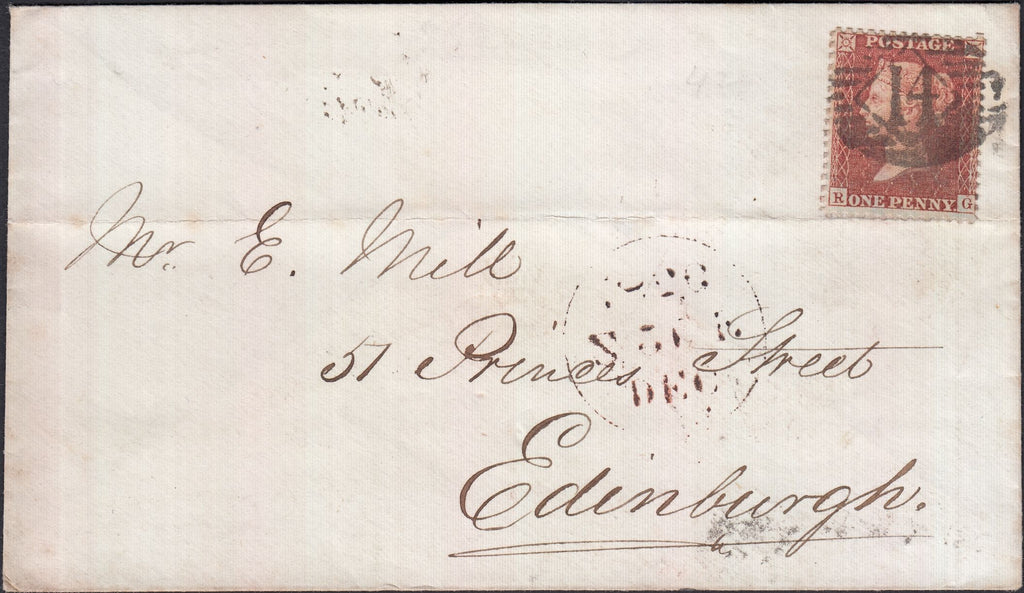 POSTAGE
14
R ONE PENNY G
Mr. E. Mill
51 Princes Street
Edinburgh.
DEC